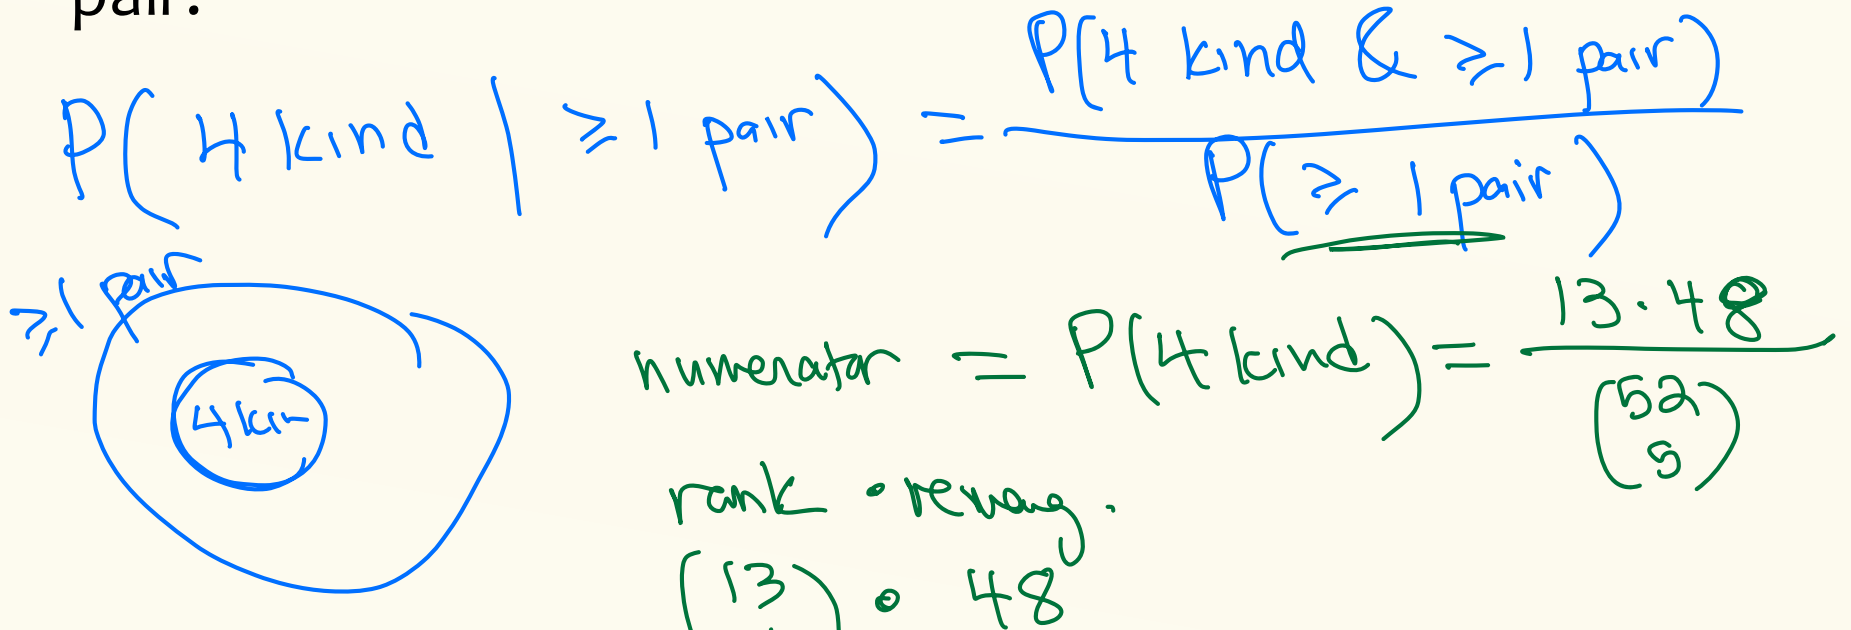 pair.
P(4 kind | ≥ 1 pair) = P(4 kind & ≥ 1 pair) / P(≥ 1 pair)
≥ 1 pair
4 kin
numerator = P(4 kind) = 13 · 48 / (52 5)
rank ·
(13 · 48